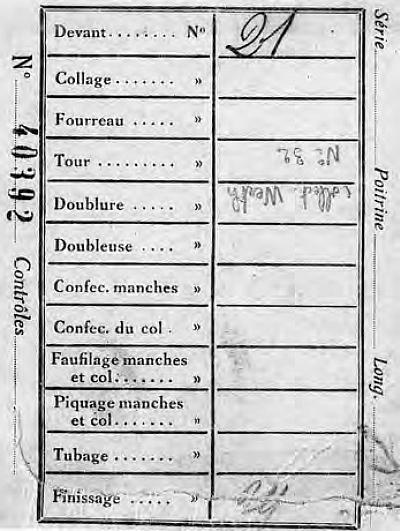 Devant........ Nº 21
Collage....... »
Fourreau ..... »
Tour ......... » Nº 32
Doublure ..... » Collect. Werth
Doubleuse .... »
Confec. manches »
Confec. du col . »
Faufilage manches
et col........ »
Piquage manches
et col........ »
Tubage ....... »
Finissage ..... »
Nº 40392 Contrôles
Série Poitrine Long.